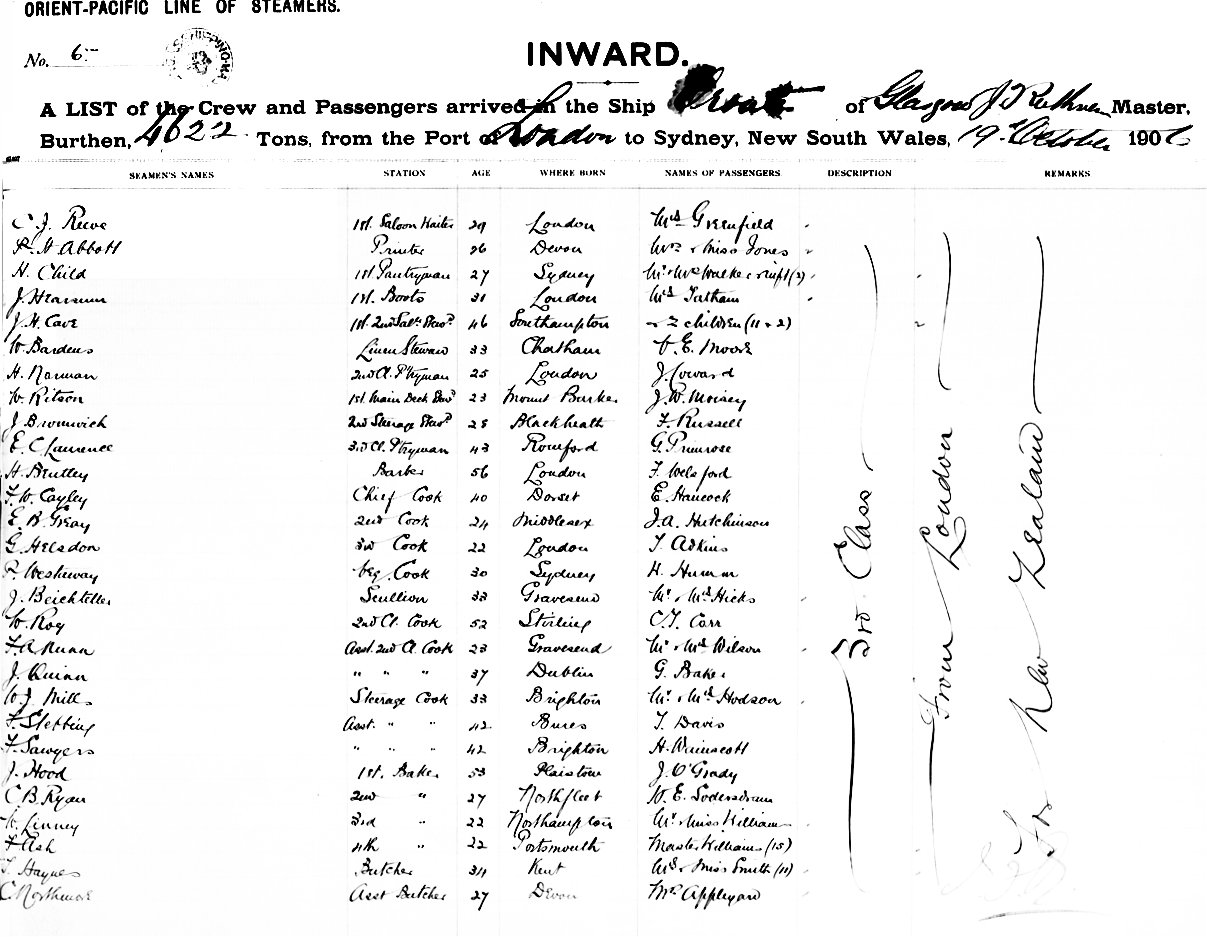 ORIENT-PACIFIC LINE OF STEAMERS.
No. 6
INWARD.
A LIST of the Crew and Passengers arrived in the Ship of Glasgow, Master,
Burthen, 4622 Tons, from the Port of London to Sydney, New South Wales, 19th October 190
SEAMEN'S NAMES STATION AGE WHERE BORN NAMES OF PASSENGERS DESCRIPTION REMARKS
C. J. Reeve 1st. Saloon Waiter 29 London Mrs Greenfield
R. H. Abbott Printer 26 Devon Mrs & Miss Jones
H. Child 1st Pantryman 27 Sydney Mr & Mrs Walker & inft (2)
J. 1st. Boots 31 London Mrs Tatham
J. H. Cave 1st. 2nd Saln. Stewd. 46 Southampton & 2 children (11 & 2)
W. Bardens Linen Steward 33 Chatham V. E. Moore
H. Norman 2nd Cl. P'tryman 25 London J. Coward
W. Ritson 1st. Main Deck Stewd. 23 Mount Barker J. W. Moisey
J. Bromwich 2nd Steerage Stewd. 28 Blackheath F. Russell
E. C. Laurence 3rd Cl. P'tryman 43 Romford G. Primrose
H. Bentley Barber 56 London F. Welsford
F. W. Cayley Chief Cook 40 Dorset E. Hancock
E. B. Gray 2nd Cook 24 Middlesex J. A. Hutchinson
G. Helsdon 3rd Cook 22 London T. Adkins
P. Westaway Veg. Cook 30 Sydney H.
J. Scullion 33 Gravesend Mr & Mrs Hicks
W. Roy 2nd Cl. Cook 52 Stirling C. T. Carr
F. A. Nunn Asst. 2nd Cl. Cook 23 Gravesend Mr & Mrs Wilson
J. Quinn " " " 37 Dublin G. Baker
W. J. Mills Steerage Cook 33 Brighton Mr & Mrs Hodson
F. Stebbing Asst. " " 42 Bures T. Davis
F. Sawyers " " " 42 Brighton H. Wainscott
J. Hood 1st. Baker 53 Plaistow J. O'Grady
C. B. Ryan 2nd " 27 Northfleet W. E.
W. Linney 3rd " 22 Northampton Mr & Miss Williams
F. Ash 4th " 22 Portsmouth Master Williams (15)
T. Haynes Butcher 34 Kent Mrs & Miss Smith (11)
C. Northmore Asst Butcher 27 Devon Mr. Appleyard
3rd Class
From London
For New Zealand